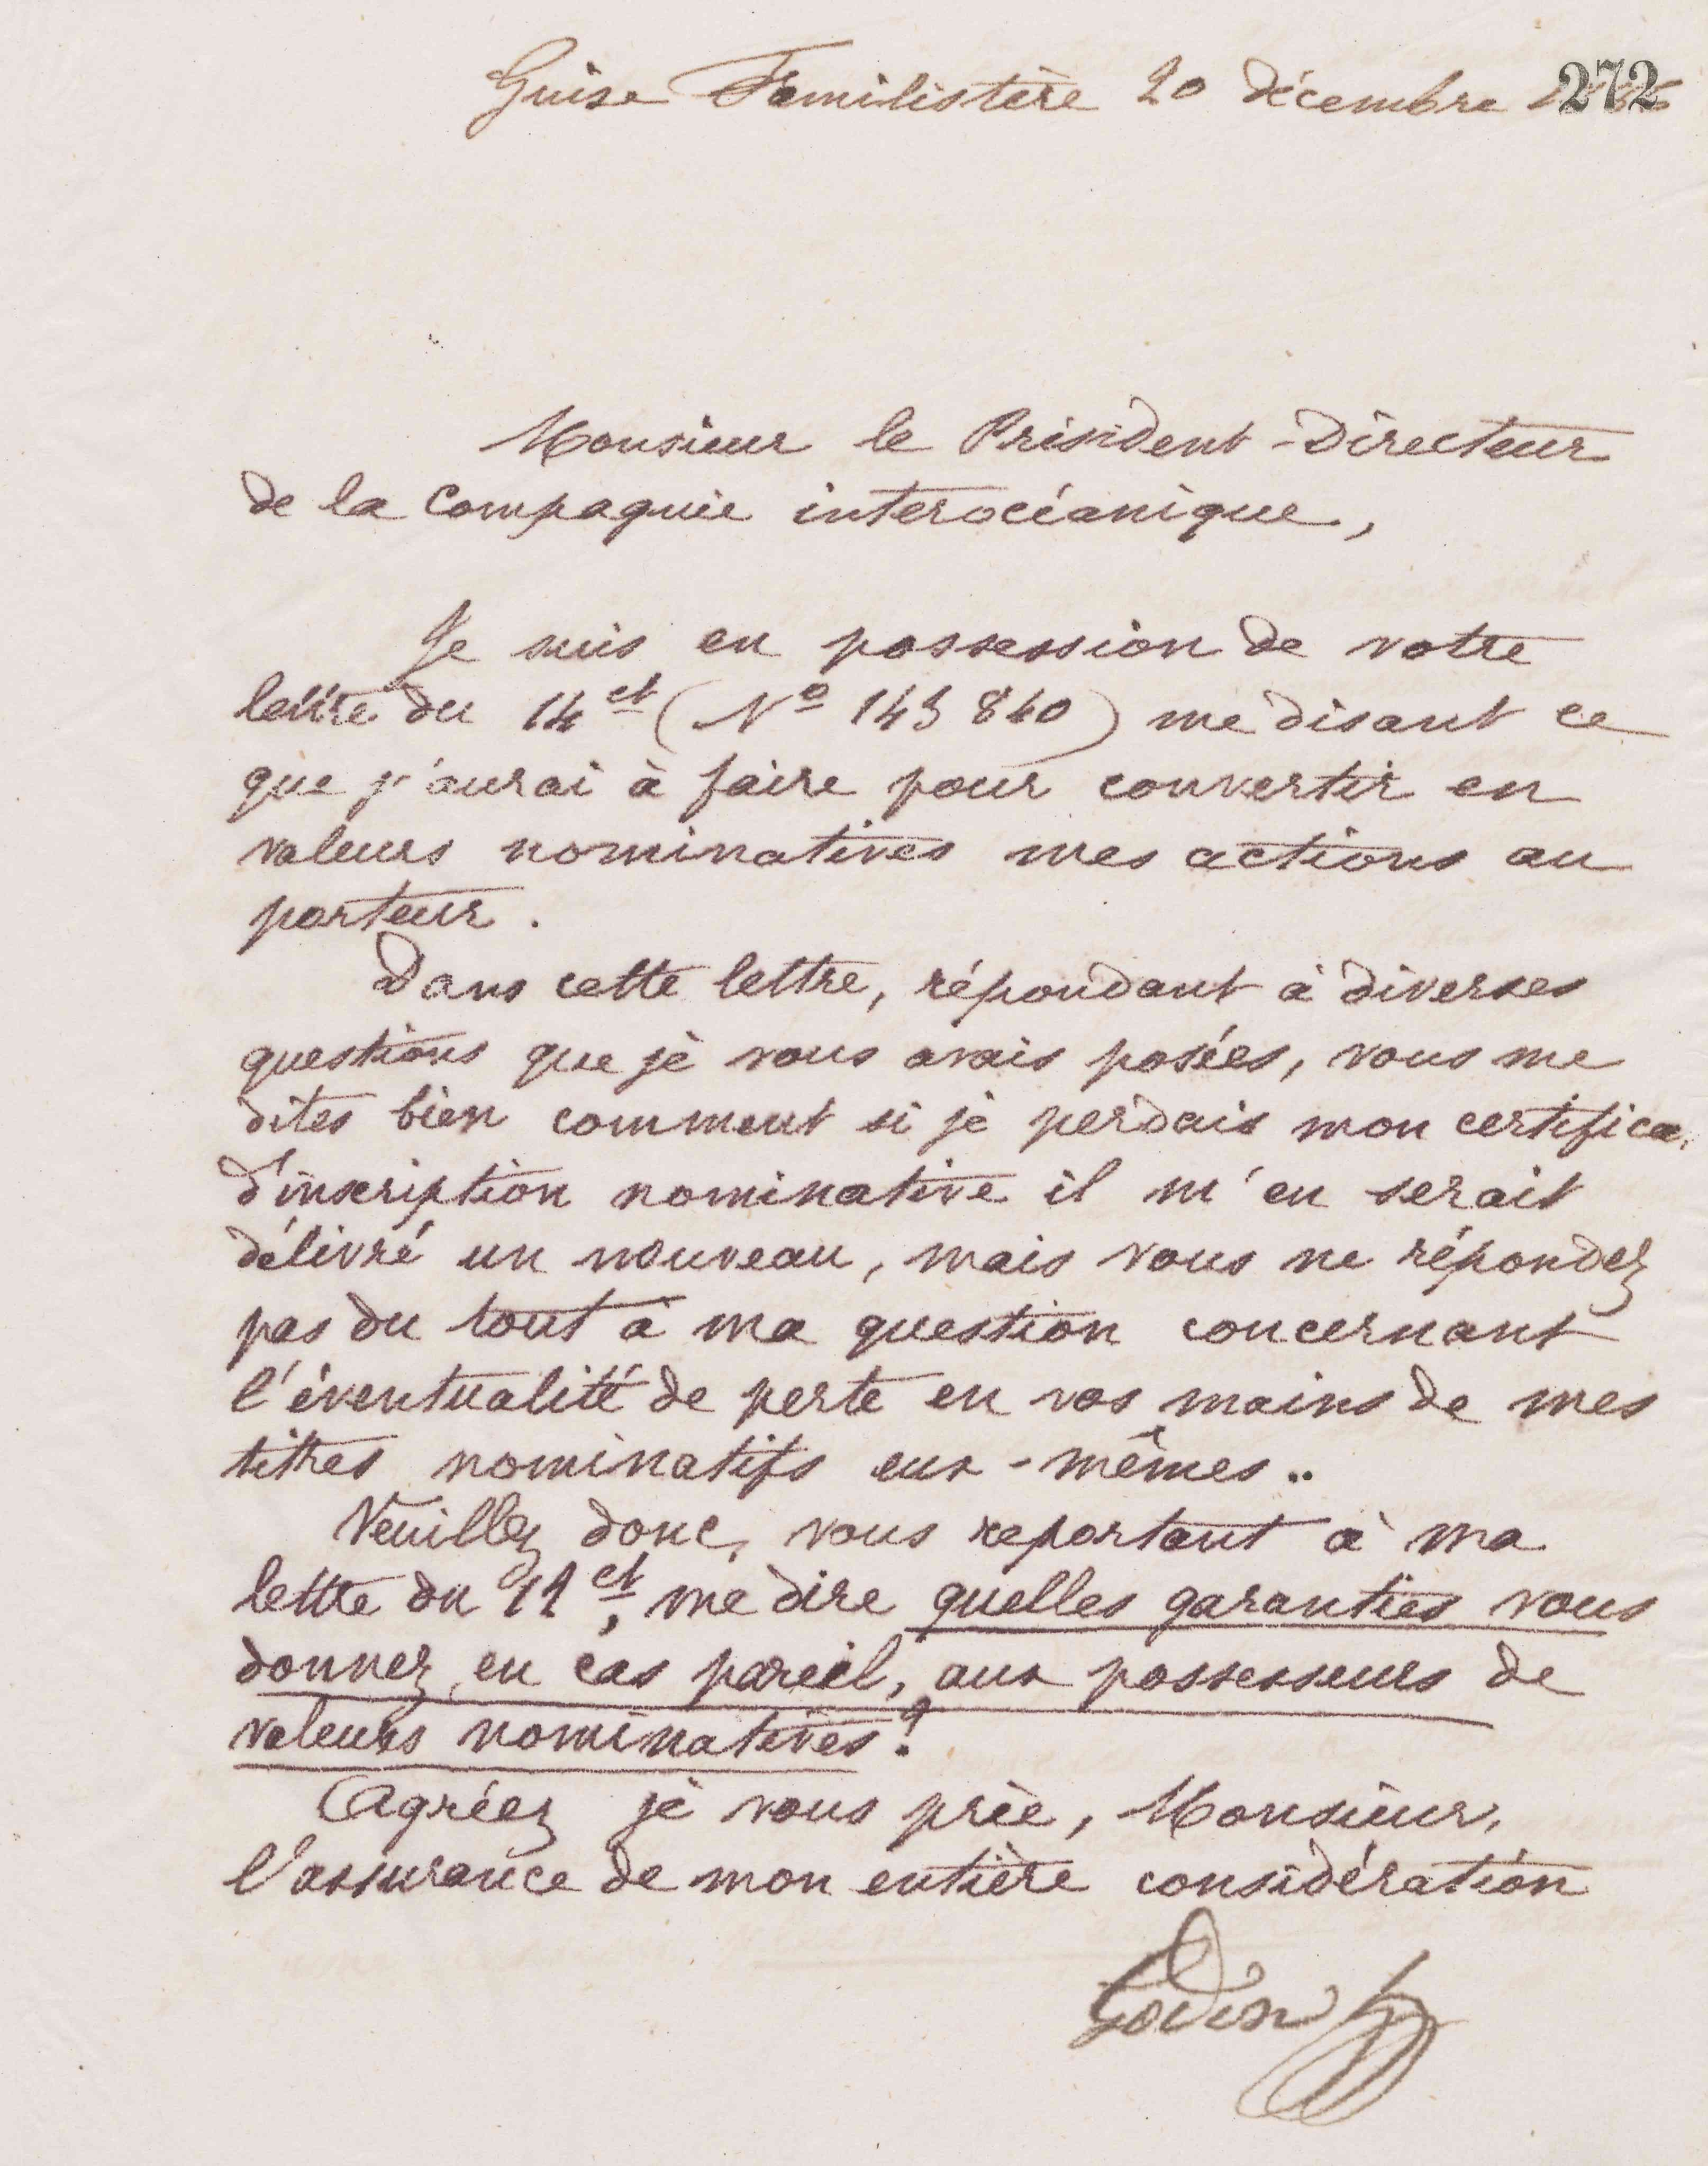 272
Guise Familistère 20 décembre
Monsieur le Président-Directeur
de la Compagnie interocéanique,
Je suis en possession de votre
lettre du 14 ct (No 143 840) me disant ce
que j'aurai à faire pour convertir en
valeurs nominatives mes actions au
porteur.
Dans cette lettre, répondant à diverses
questions que je vous avais posées, vous me
dites bien comment si je perdais mon certifica
d'inscription nominative il m'en serait
délivré un nouveau, mais vous ne répondez
pas du tout à ma question concernant
l'éventualité de perte en vos mains de mes
titres nominatifs eux-mêmes..
Veuillez donc, vous reportant à ma
lettre du 11 ct, me dire quelles garanties vous
donnez, en cas pareil, aux possesseurs de
valeurs nominatives?
Agréez je vous prie, Monsieur,
l'assurance de mon entière considération
Godin